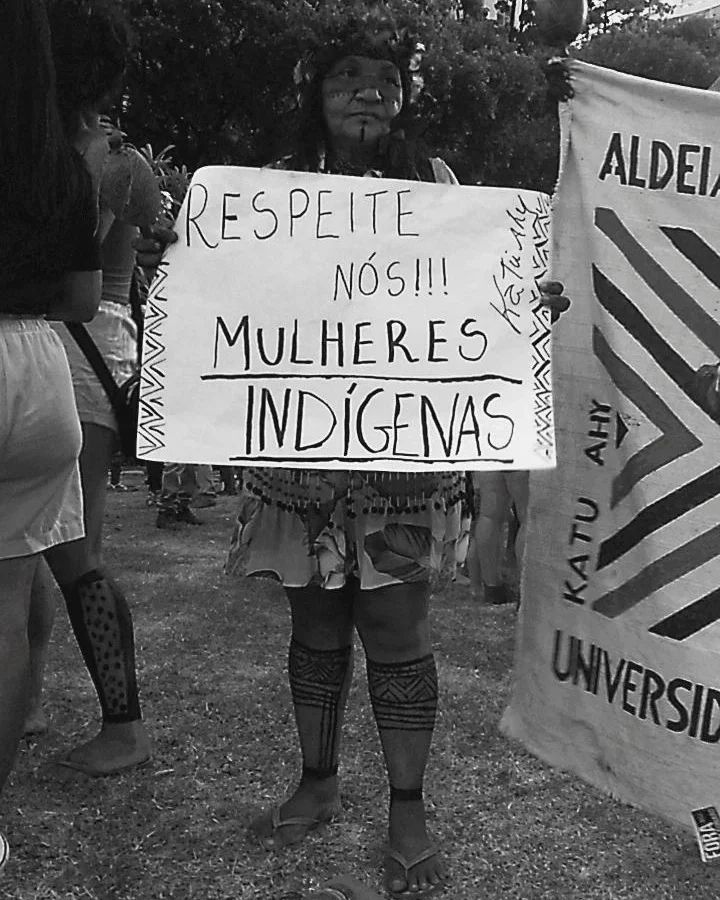 RESPEITE
NÓS!!!
MULHERES
INDÍGENAS
Katú Ahy
ALDEIA
KATU AHY
UNIVERSID
FORA